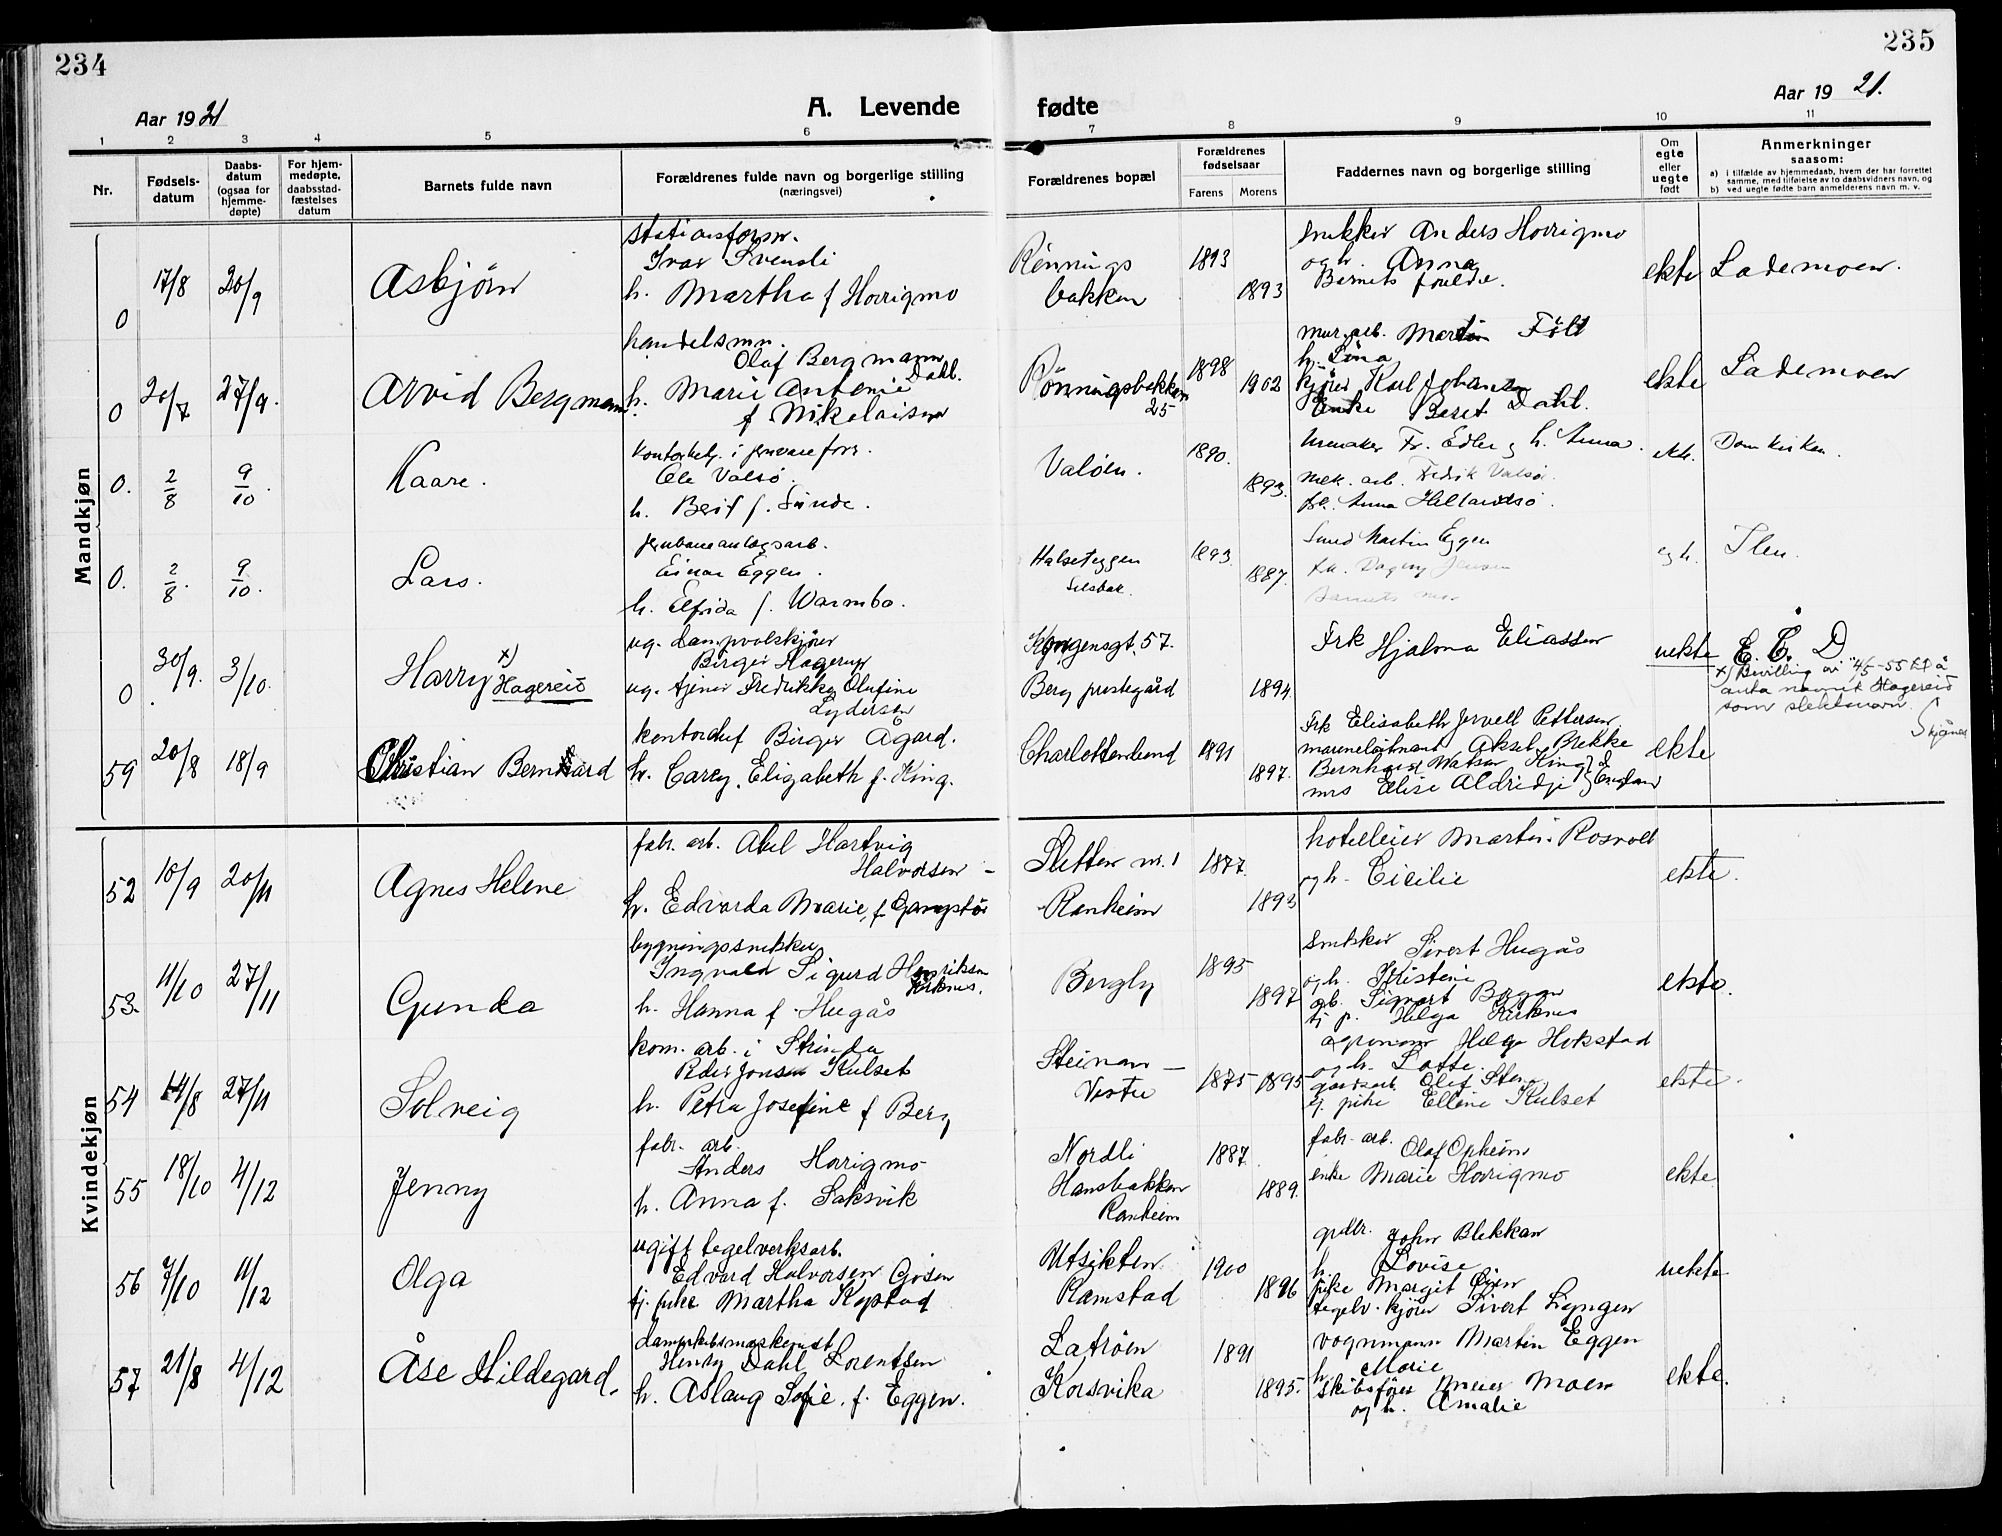 234
235
Aar 1921
A. Levende fødte
Aar 1921.
1 2 3 4 5 6 7 8 9 10 11
Nr.
Fødsels-
datum
Daabs-
datum
(ogsaa for
hjemme-
døpte)
For hjem-
medøpte,
daabsstad-
fæstelses
datum
Barnets fulde navn
Forældrenes fulde navn og borgerlige stilling
(næringsvei)
Forældrenes bopæl
Forældrenes
fødselsaar
Farens Morens
Faddernes navn og borgerlige stilling
Om
egte
eller
uegte
født
Anmerkninger
saasom:
a) i tilfælde av hjemmedaab, hvem der har forrettet
samme, med tilføielse av to daabsvidners navn, og
b) ved uegte fødte barn anmelderens navn m. v.
Mandkjøn
0 17/8 20/9
Asbjörn
stationsform.
Ivar Svendli
h. Martha f Hovrigmo
Rönnings
bakken
1893
1893
snekker Anders Hovrigmo
og h. Anna
Barnets foreldre.
ekte
Lademoen.
0 20/7 27/9.
Arvid Bergmann
handelsmn.
Olaf Bergmann
Dahl.
h. Marie Antonie
f Nikolaisen
Rönningsbakken
25
1898
1902
mur. arb. Martin
h. Lina
kjörer Karl Johansen
Enke Beret Dahl.
ekte
Lademoen
0. 2/8 9/10.
Kaare.
Ole Valsö.
h. Berit f. Sunde.
Valöen.
1890.
1893.
Urmaker Fr. Edler og h. Anna.
mek. arb. Fredrik Valsö.
Anna Hellandsö.
ekte.
Domkirken.
0. 2/8. 9/10.
Lars.
jernbaneanlægsarb.
Einar Eggen.
h. Elfrida f. Warmbo.
Halseteggen
Selsbak.
1893.
1887.
Smed Martin Eggen
frk. Dagny Jensen
Barnets mor
egte.
Ilen.
0 30/9. 3/10.
Harry x)
Hagereid
ug. dampvalskjörer
Birger Hagerup
ug. tjener Fredrikke Olufine
Lydersen
Kongensgt. 57.
Berg prestegård
1894.
Frk Hjalma Eliassen
uekte
E. C. D
x) Bevilling av 4/5-55 til å
anta navnet Hagereid
som slektsnavn.
59 20/8 18/9
Christian Bernhard
kontorchef Birger Ågård.
h. Carey Elizabeth f. King.
Charlottenlund
1891
1897.
Frk Elisabeth Jervell Pettersen
marineløitnant Aksel Brekke
Bernhard Watson King
mrs Elise Aldridge } England
ekte
Kvindekjøn
52 10/9 20/11
Agnes Helene
fabr. arb. Abel Hartvig
Halvorsen
h. Edvarda Marie, f Gangstö
Sletten nr. 1
Ranheim
1877.
1893
hotelleier Martin Rosvold
og h. Cicilie
ekte.
53. 11/10 27/11
Gunda
bygningssnekker
Ingvald Sigurd Henriksen
Kirknes.
h. Hanna f. Hugås
Bergly
1895
1897
snekker Sivert Hugås
og h. Kristine
arb. Sigvart
tj. p. Helga Kirknes
ekte.
54 14/8 27/11
Solveig
kom. arb. i Strinda
Peder Jonsen Kulset
h. Petra Josefine f Berg
Steinan
Vestre
1875 1895
agronom Helge Hokstad
og h. Lotte.
gårdsarb. Olef Sten
tj. pike Elline Kulset
ekte.
55 18/10 4/12
Jenny
fabr. arb.
Anders Hovrigmo
h. Anna f. Saksvik
Nordli
Hansbakken
Ranheim
1887
1889.
fabr. arb.
Olaf Opheim
enke Marie Hovrigmo
ekte
56 7/10 11/12
Olga
ugift teglverksarb.
Edvard Halvorsen Gisen
tj. pike Martha Kopstad
Utsikten
Ramstad
1900
1896
grdbr. John Blekkan
h. Lovise
pike Margit Öien
teglv. kjörer Sivert Lyngen
uekte
57 21/8 4/12
Åse Hildegard.
dampskibsmaskinist
Henry Dahl Lorentsen
h. Aslaug Sofie. f. Eggen.
Latröen
Korsvika
1891
1895.
vognmann Martin Eggen
h. Marie
skibsförer Meier Moen
og h. Amalie
ekte.